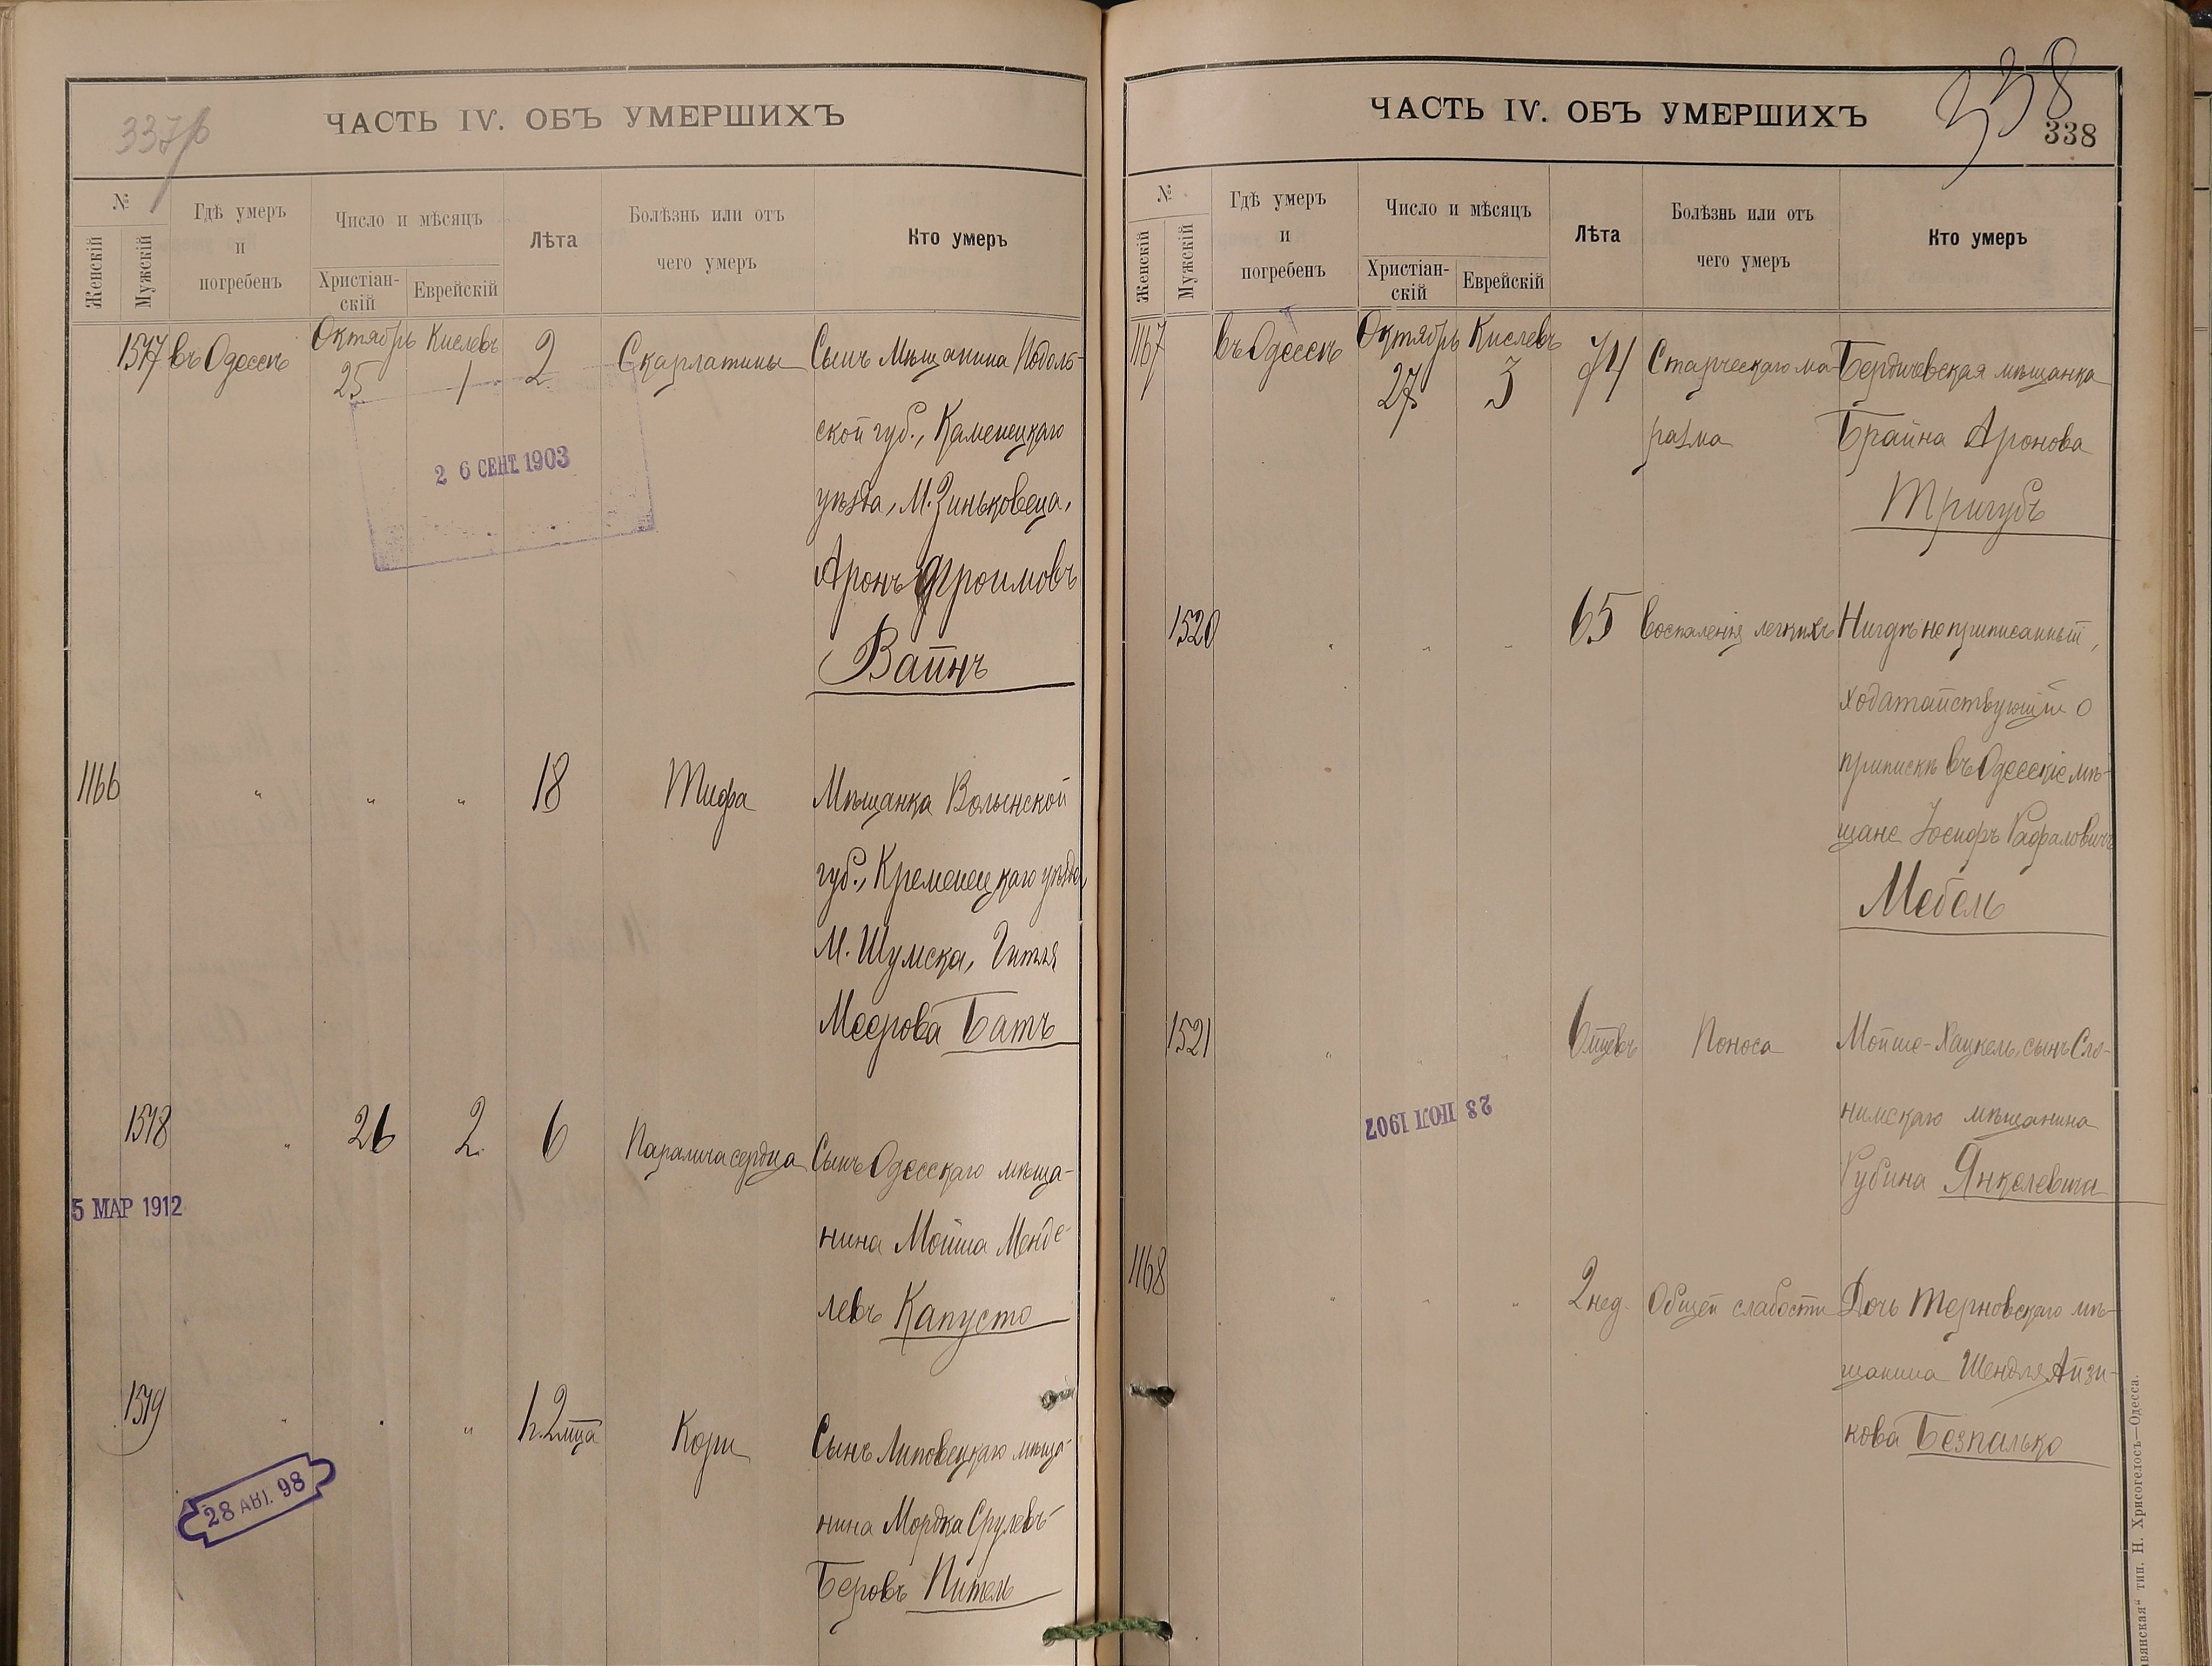 337 об
ЧАСТЬ IV. ОБЪ УМЕРШИХЪ
№
Женскій
Мужскій
Гдѣ умеръ
и
погребенъ
Число и мѣсяцъ
Христіан-
скій
Еврейскій
Лѣта
Болѣзнь или отъ
чего умеръ
Кто умеръ
1517 въ Одессѣ Октябрь 25 Кислевъ 1 2 Скарлатины Сынъ Мѣщанина Подоль-
ской губ., Каменецкаго
уѣзда, М. Зиньковеца,
Аронъ Фроимовъ
Вайнъ
26 СЕНТ. 1903
1166 " " " 18 Тифа Мѣщанка Волынской
губ., Кременецкаго уѣзда,
М. Шумска, Гитля
Меерова Батъ
1518 " 26 2 6 Паралича сердца Сынъ Одесскаго мѣща-
нина Мойша Менде-
левъ Капусто
5 МАР 1912
1519 " " " 1 г. 2 мѣца Кори Сынъ Липовецкаго мѣща-
нина Мордка Срулевъ-
Беровъ Питель
28 АВГ. 98
338
ЧАСТЬ IV. ОБЪ УМЕРШИХЪ
338
№
Женскій
Мужскій
Гдѣ умеръ
и
погребенъ
Число и мѣсяцъ
Христіан-
скій
Еврейскій
Лѣта
Болѣзнь или отъ
чего умеръ
Кто умеръ
1167 въ Одессѣ Октябрь 27 Кислевъ 3 74 Старческаго ма- Бердичевская мѣщанка
разма Брайна Аронова
Тригубъ
1520 " " " 65 Воспаленія легкихъ Нигдѣ не приписанный,
ходатайствующій о
припискѣ въ Одесскіе мѣ-
щане Іосифъ Рафаловичъ
Мебель
1521 " " " 6 мцевъ Поноса Мойше-Хацкель, сынъ Сло-
нимскаго мѣщанина
Рубина Янкелевича
23 ИОЛ 1907
1168 " " " 2 нед. Общей слабости Дочь Терновскаго мѣ-
щанина Шендля Айзи-
кова Безпалько
вянская" тип. Н. Хрисогелосъ—Одесса.